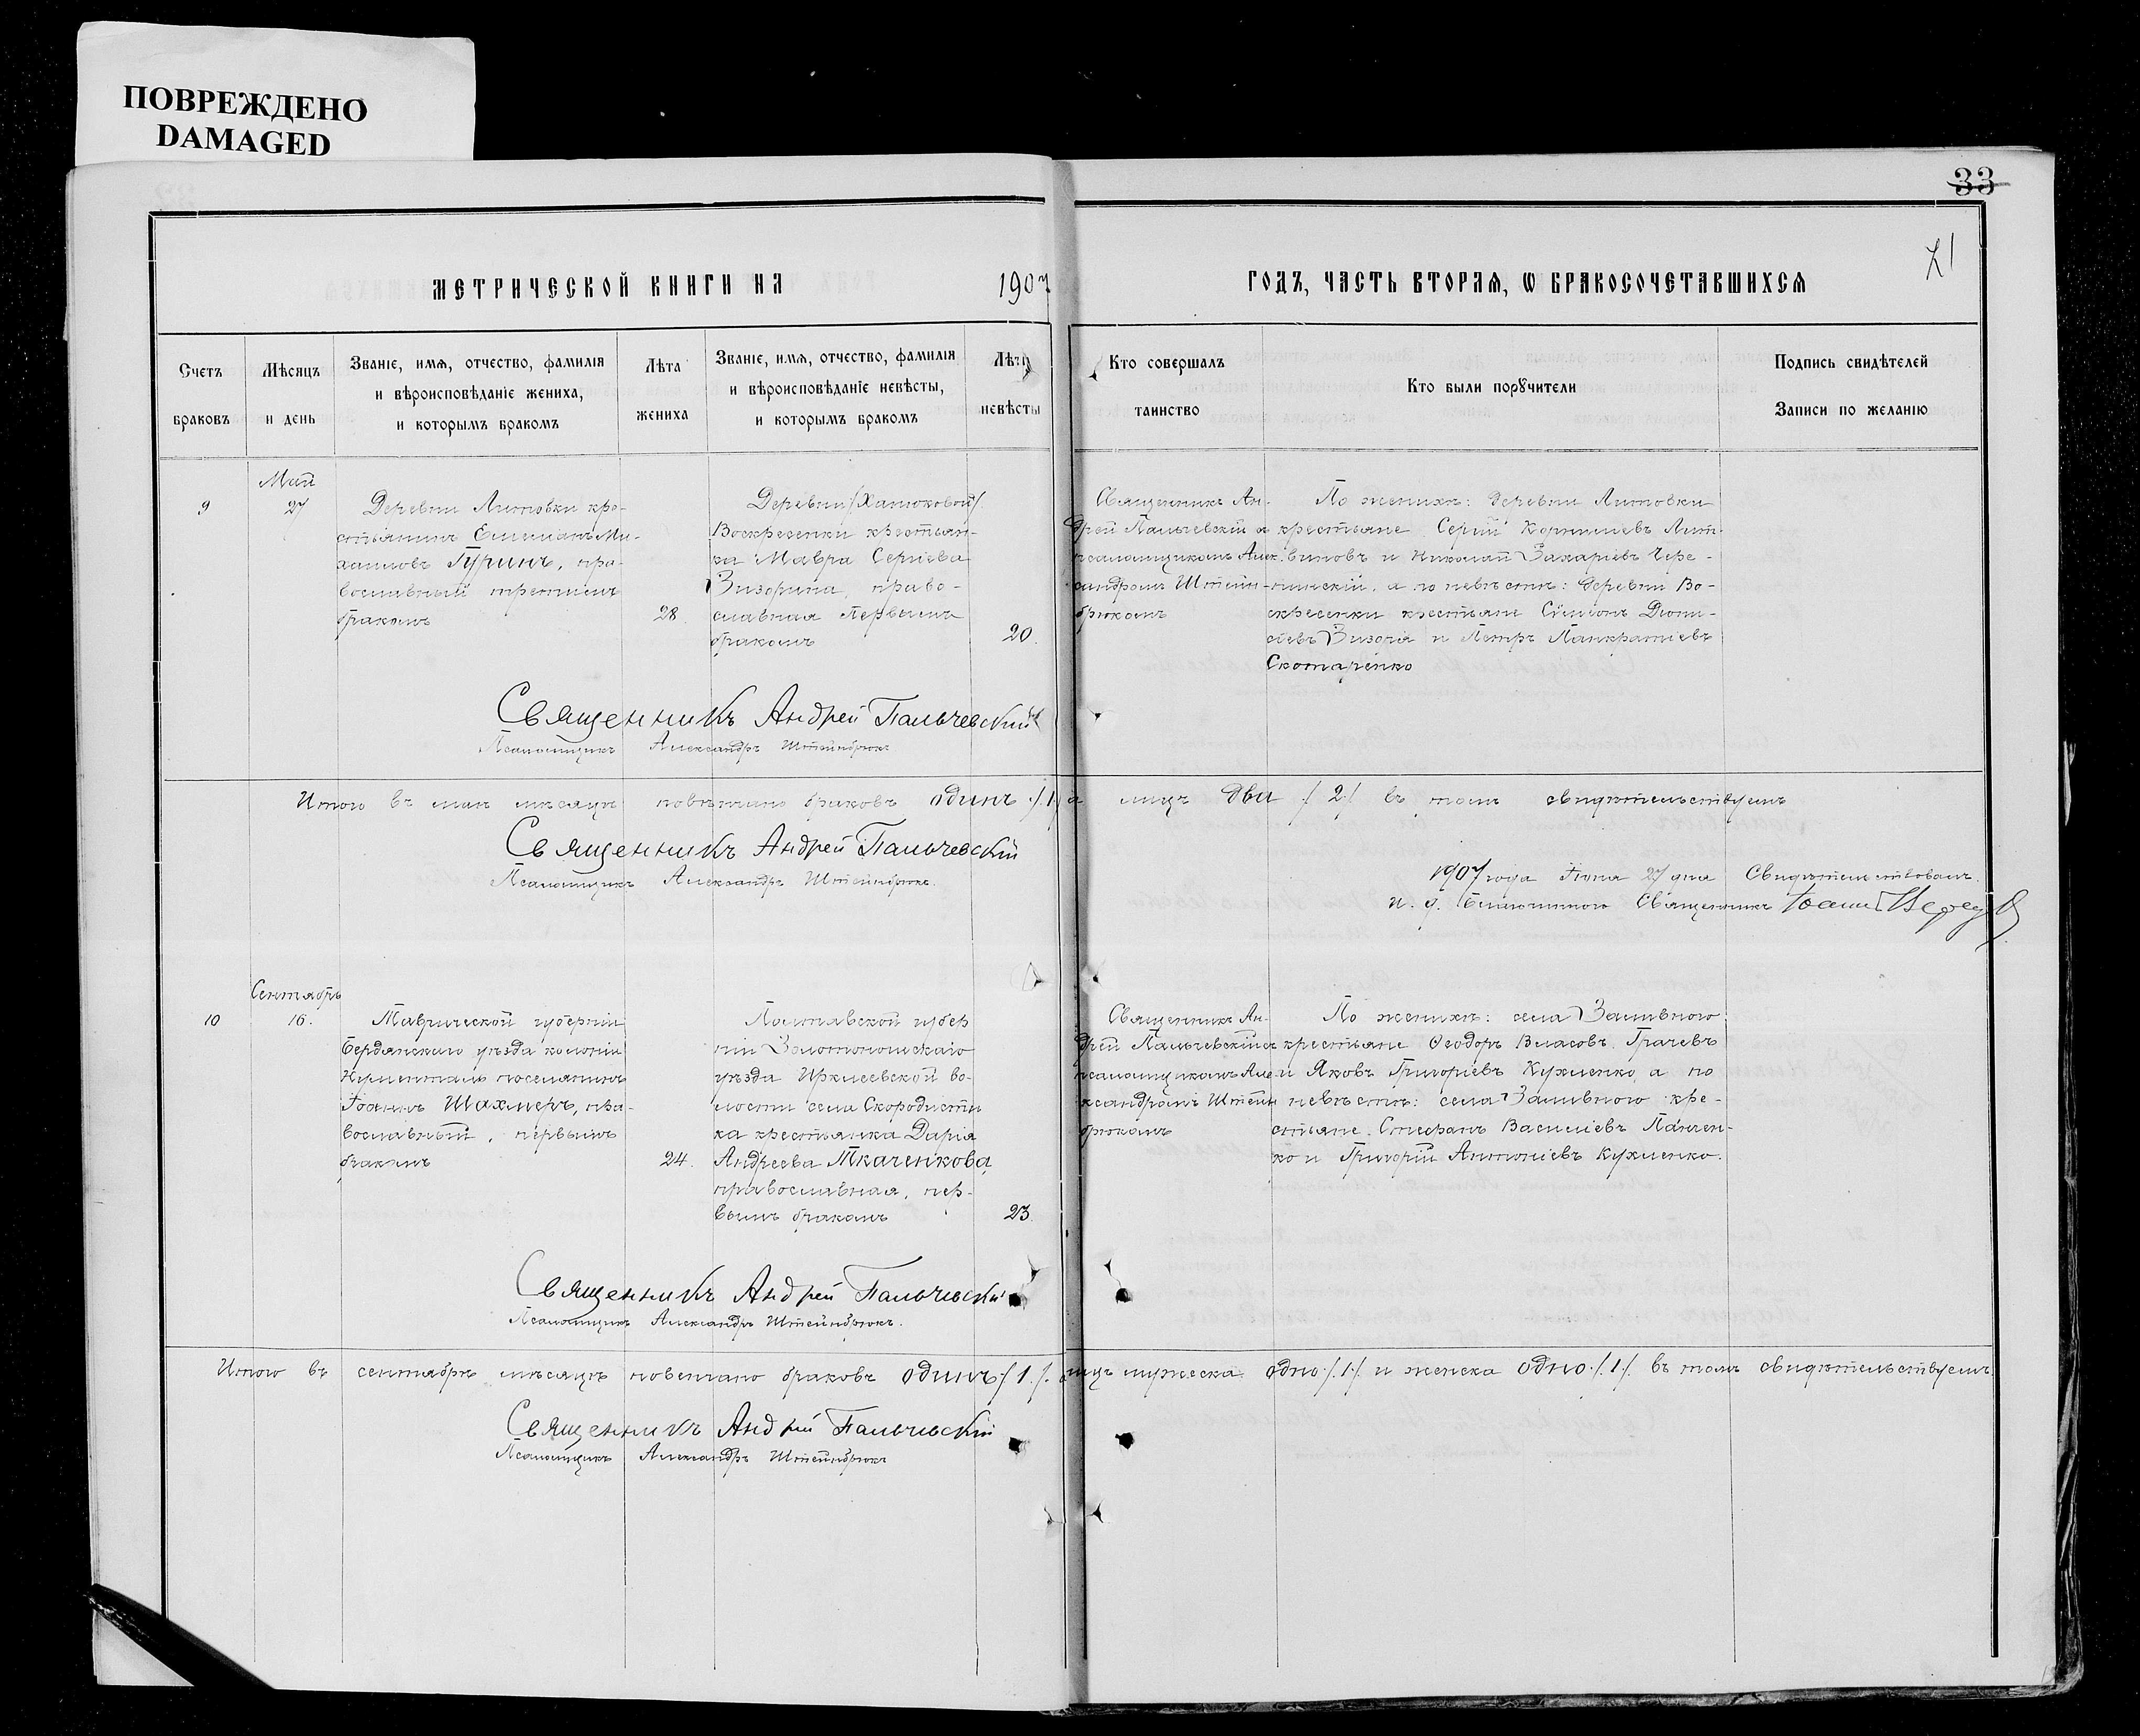 ПОВРЕЖДЕНО
DAMAGED
33
71
МЕТРИЧЕСКОЙ КНИГИ НА 1907 ГОДЪ, ЧАСТЬ ВТОРАЯ, Ѡ БРАКОСОЧЕТАВШИХСЯ
Счетъ
браковъ
Мѣсяцъ
и день
Званіе, имя, отчество, фамилія
и вѣроисповѣданіе жениха,
и которымъ бракомъ
Лѣта
жениха
Званіе, имя, отчество, фамилія
и вѣроисповѣданіе невѣсты,
и которымъ бракомъ
Лѣта
невѣсты
Кто совершалъ
таинство
Кто были порꙋчители
Подпись свидѣтелей
Записи по желанію
9
Май
27
Деревни Литовки кре-
стьянинъ Емеліанъ Ми-
хаиловъ Гуринъ, пра-
вославный третьимъ
бракомъ
28
Деревни /Ханюковой/
Воскресенки крестьян-
ка Мавра Сергіева
Зизорина, право-
славная первымъ
бракомъ
20.
Священникъ Ан-
дрей Пальчевскій и
псаломщикомъ Алек-
сандромъ Штейн-
брюкомъ
По женихѣ: деревни Литовки
крестьяне Сергій Корниліевъ Лит-
виновъ и Николай Захаріевъ Чере-
пинскій, а по невѣстѣ: деревни Во-
скресенки крестьяне Сѵмеонъ Діони-
сіевъ Зизоря и Петръ Панкратіевъ
Скотаренко
Священникъ Андрей Пальчевскій
Псаломщикъ Александръ Штейнбрюкъ
Итого въ маѣ мѣсяцѣ повѣнчано браковъ одинъ /1/ а лицъ два /2/ въ томъ свидѣтельствуемъ
Священникъ Андрей Пальчевскій
Псаломщикъ Александръ Штейнбрюкъ.
1907 года Іюня 27 дня Свидѣтельствовалъ
и. д. Благочиннаго Священникъ Іоаннъ
10
Сентябрь
16.
Таврической губерніи
Бердянскаго уѣзда колоніи
поселянинъ
Іоаннъ Шахмеръ, пра-
вославный, первымъ
бракомъ
24.
Полтавской губер
ніи Золотоношскаго
уѣзда Ирклеевской во-
лости села Скородисти
ка крестьянка Дарія
Андреева Ткаченкова,
православная, пер-
вымъ бракомъ
23
Священникъ Ан-
дрей Пальчевскій съ
псаломщикомъ Але-
ксандромъ Штейн
брюкомъ
По женихѣ: села Заливного
крестьяне Ѳеодоръ Власовъ Грачевъ
и Яковъ Григоріевъ Кухленко, а по
невѣстѣ: села Заливного кре-
стьяне Стефанъ Василіевъ Панчен-
ко и Григорій Антоніевъ Кухленко.
Священникъ Андрей Пальчевскій
Псаломщикъ Александръ Штейнбрюкъ.
Итого въ сентябрѣ мѣсяцѣ повѣнчано браковъ одинъ /1/. лицъ мужеска одно /1/. и женска одно /1/. въ томъ свидѣтельствуемъ.
Священникъ Андрей Пальчевскій
Псаломщикъ Александръ Штейнбрюкъ